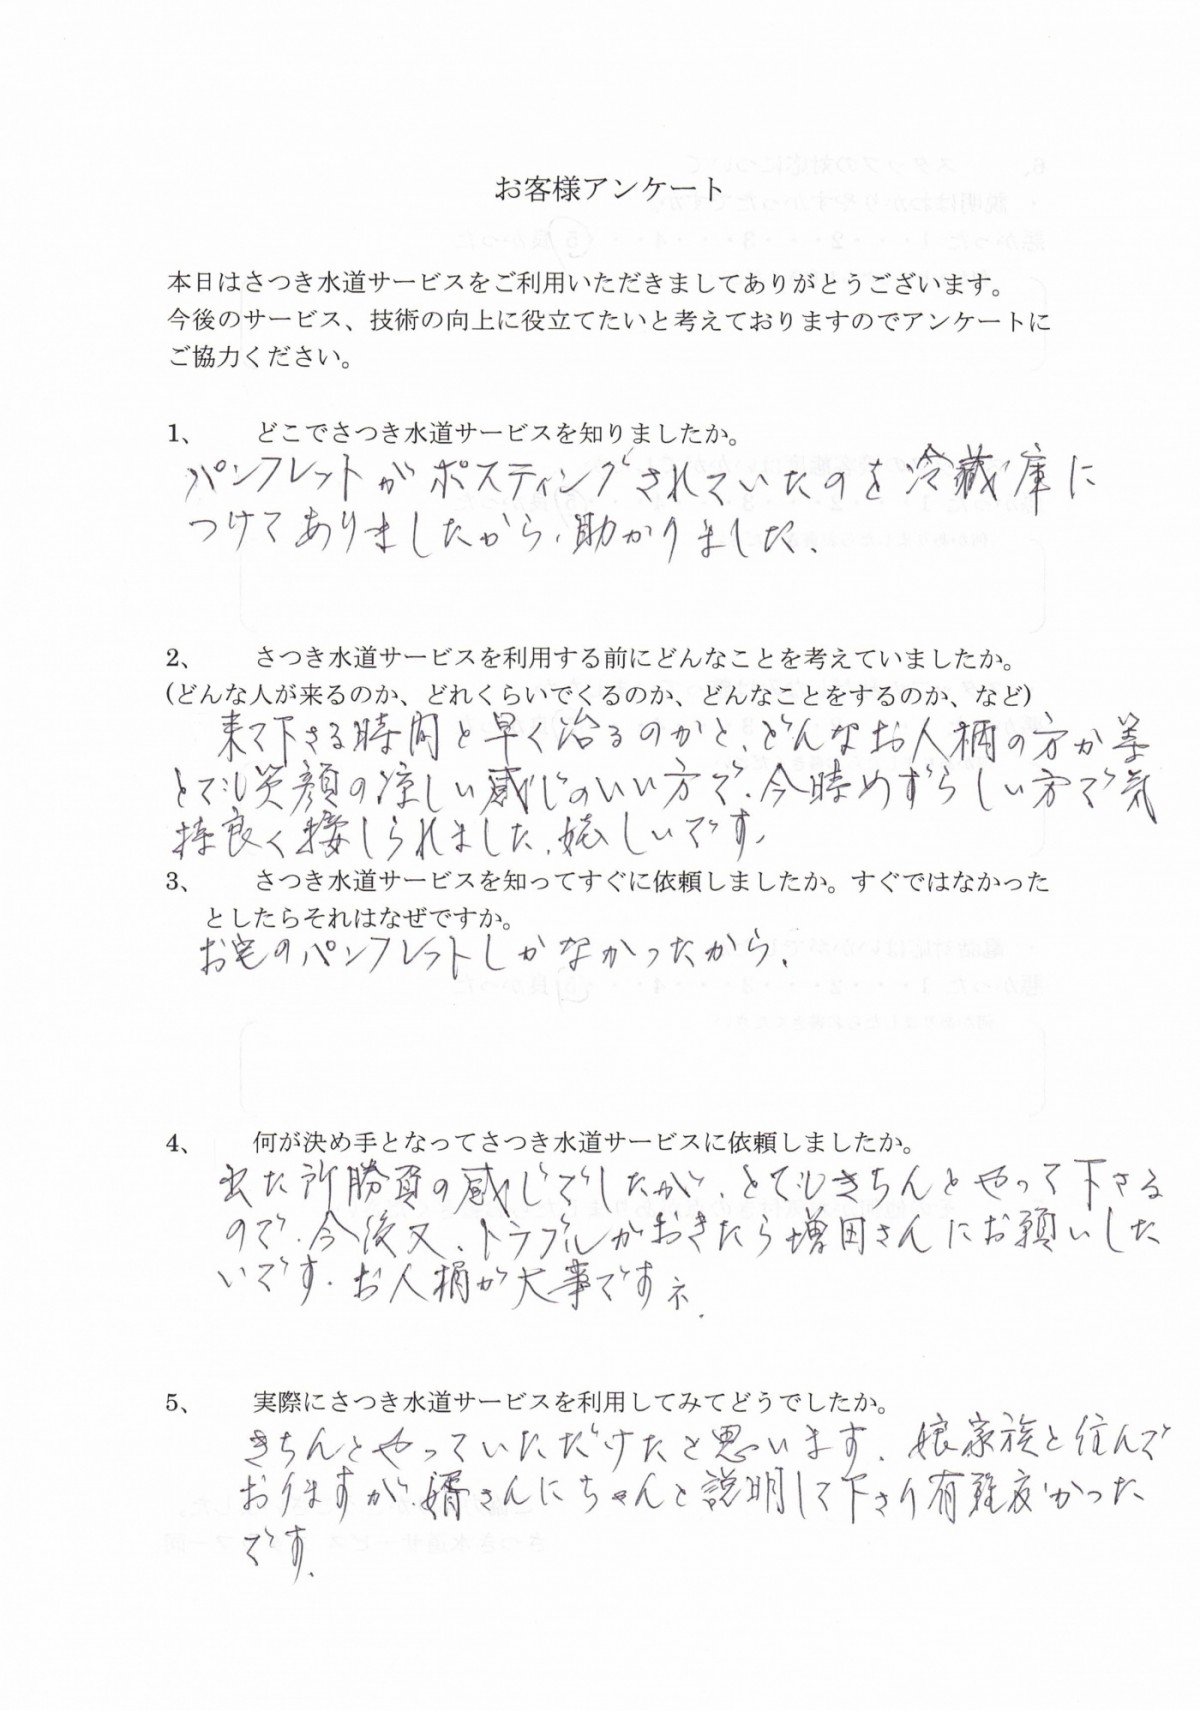 お客様アンケート
本日はさつき水道サービスをご利用いただきましてありがとうございます。
今後のサービス、技術の向上に役立てたいと考えておりますのでアンケートに
ご協力ください。
1、 どこでさつき水道サービスを知りましたか。
パンフレットがポスティングされていたのを冷蔵庫に
つけてありましたから、助かりました、
2、 さつき水道サービスを利用する前にどんなことを考えていましたか。
(どんな人が来るのか、どれくらいでくるのか、どんなことをするのか、など)
来て下さる時間と早く治るのかと、どんなお人柄の方か等
とても笑顔の涼しい感じのいい方で、今時めずらしい方で気
持良く接しられました、嬉しいです、
3、 さつき水道サービスを知ってすぐに依頼しましたか。すぐではなかった
としたらそれはなぜですか。
お宅のパンフレットしかなかったから、
4、 何が決め手となってさつき水道サービスに依頼しましたか。
出た所勝負の感じでしたが、とてもきちんとやって下さる
ので、今後又、トラブルがおきたら増田さんにお願いした
いです、お人柄が大事ですネ、
5、 実際にさつき水道サービスを利用してみてどうでしたか。
きちんとやっていただけたと思います、娘家族と住んで
おりますが、婿さんにちゃんと説明して下さり有難度かった
です、